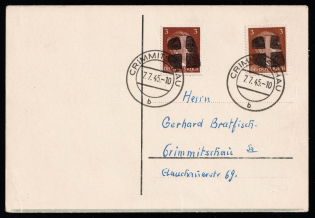 3 3
CRIMMITSCHAU
7.7.45-10
b
CRIMMITSCHAU
7.7.45-10
b
Herrn
Gerhard Bratfisch.
Crimmitschau
69.